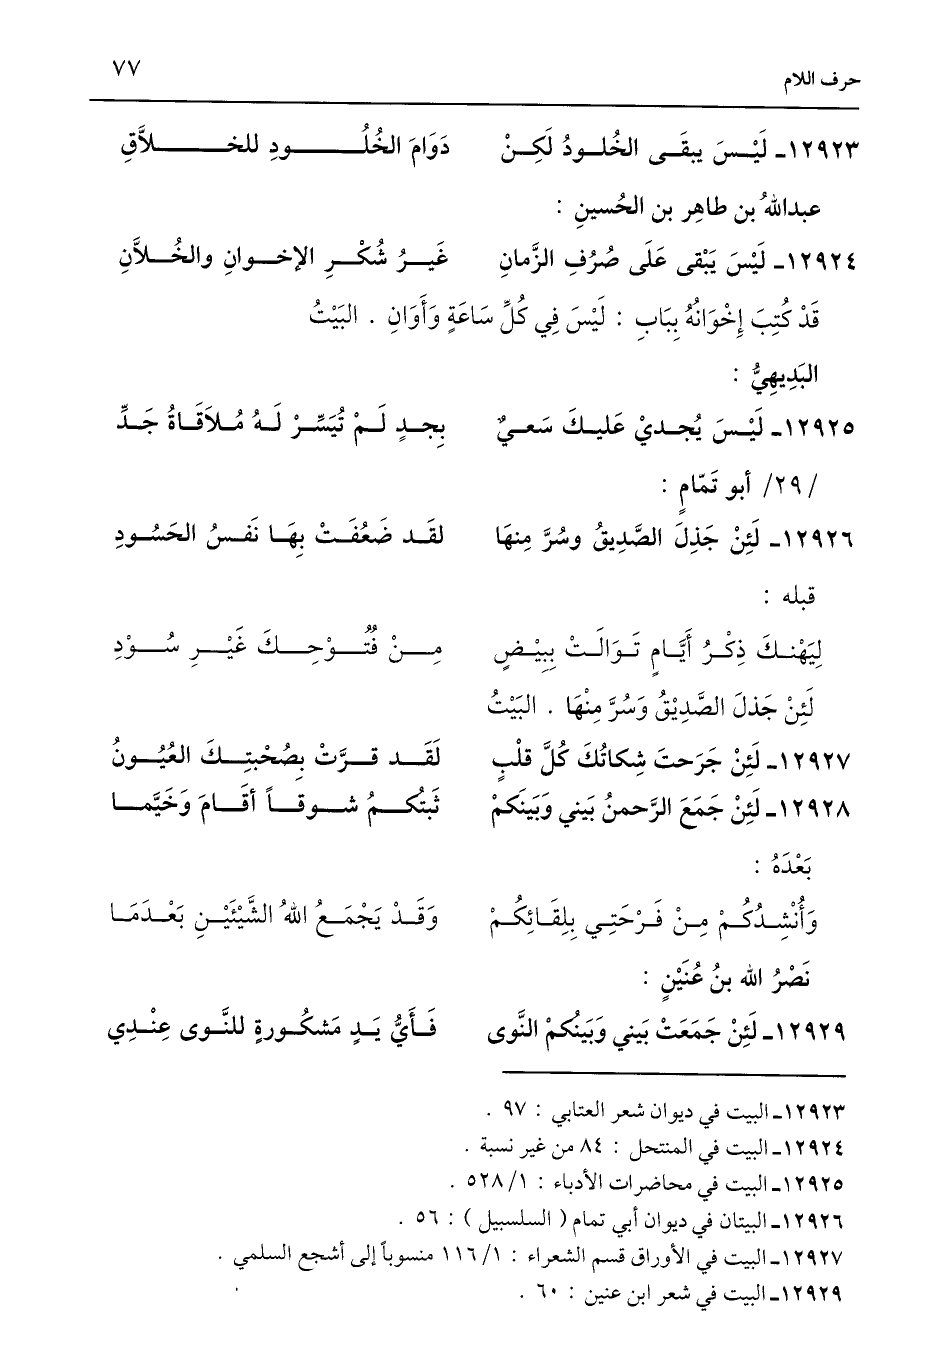 ٧٧
حرف اللام
١٢٩٢٣ـ لَيْـسَ يبقَـى الخُلـودُ لَكِـنْ دَوَامَ الخُلُـودِ للخـلاَّقِ
عبداللهُ بن طاهِر بن الحُسينِ :
١٢٩٢٤ـ لَيْسَ يَبْقى عَلَى صُرُفِ الزَّمانِ غَيـرُ شُكْـرِ الإخـوانِ والخُـلاَّنِ
قَدْ كُتِبَ إخْوَانُهُ بِبَابِ : لَيْسَ فِي كُلِّ سَاعَةٍ وَأَوَانِ . البَيْتُ
البَدِيهِيُّ :
١٢٩٢٥ـ لَيْـسَ يُجـديْ عَليـكَ سَعـيٌ بِجـدٍ لَـمْ تُيَسِّـرْ لَـهُ مُـلاَقَـاةُ جَـدِّ
/ ٢٩/ أبو تَمّامٍ :
١٢٩٢٦ـ لَئِنْ جَذِلَ الصَّدِيقُ وسُرَّ مِنهَا لقَـد ضَعُفَـتْ بِهَـا نَفـسُ الحَسُـودِ
قبله :
لِيَهْنـكَ ذِكْـرُ أَيَّـامٍ تَـوَالَـتْ بِبِيْـضٍ مِـنْ فُتُـوْحِـكَ غَيْـرِ سُـوْدِ
لَئِنْ جَذلَ الصَّدِيْقُ وَسُرَّ مِنْهَا . البَيْتُ
١٢٩٢٧ـ لَئِنْ جَرَحتَ شِكاتُكَ كُلَّ قلبٍ لَقَـد قـرَّتْ بِصُحْبتِـكَ العُيُـونُ
١٢٩٢٨ـ لَئِنْ جَمَعَ الرَّحمنُ بَيني وَبَينَكمْ ثَبتُكـمُ شـوقـاً أقَـامَ وَخَيَّمـا
بَعْدَهُ :
وَأُنْشِـدُكُـمْ مِـنْ فَـرْحَتِـي بِلِقَـائِكُـمْ وَقَـدْ يَجْمَـعُ اللهُ الشَّيْئَيْـنِ بَعْـدَمَـا
نَصْرُ الله بنُ عُنَيْنٍ :
١٢٩٢٩ـ لَئِنْ جَمَعَتْ بَيني وَبَينُكمْ النَّوى فَـأَيُّ يَـدٍ مَشكُـورةٍ للنَّـوى عِنْـدِي
١٢٩٢٣ـ البيت في ديوان شعر العتابي : ٩٧ .
١٢٩٢٤ـ البيت في المنتحل : ٨٤ من غير نسبة .
١٢٩٢٥ـ البيت في محاضرات الأدباء : ١/ ٥٢٨ .
١٢٩٢٦ـ البيتان في ديوان أبي تمام ( السلسبيل ) : ٥٦ .
١٢٩٢٧ـ البيت في الأوراق قسم الشعراء : ١/ ١١٦ منسوباً إلى أشجع السلمي .
١٢٩٢٩ـ البيت في شعر ابن عنين : ٦٠ .